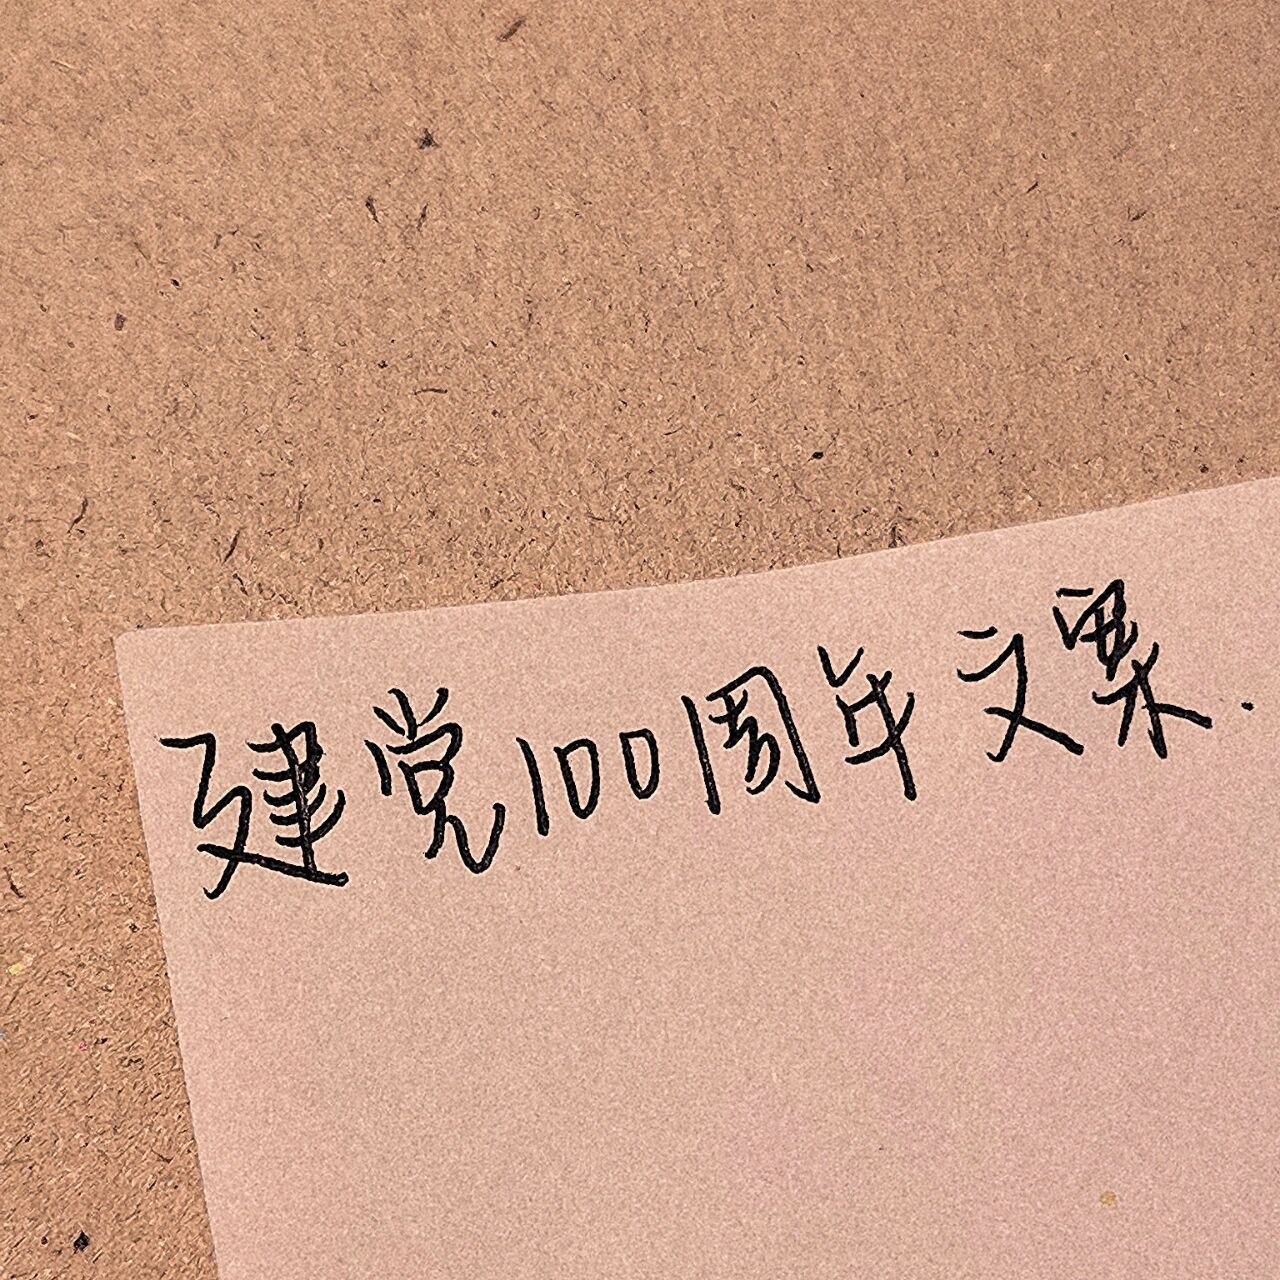 建党100周年文案.